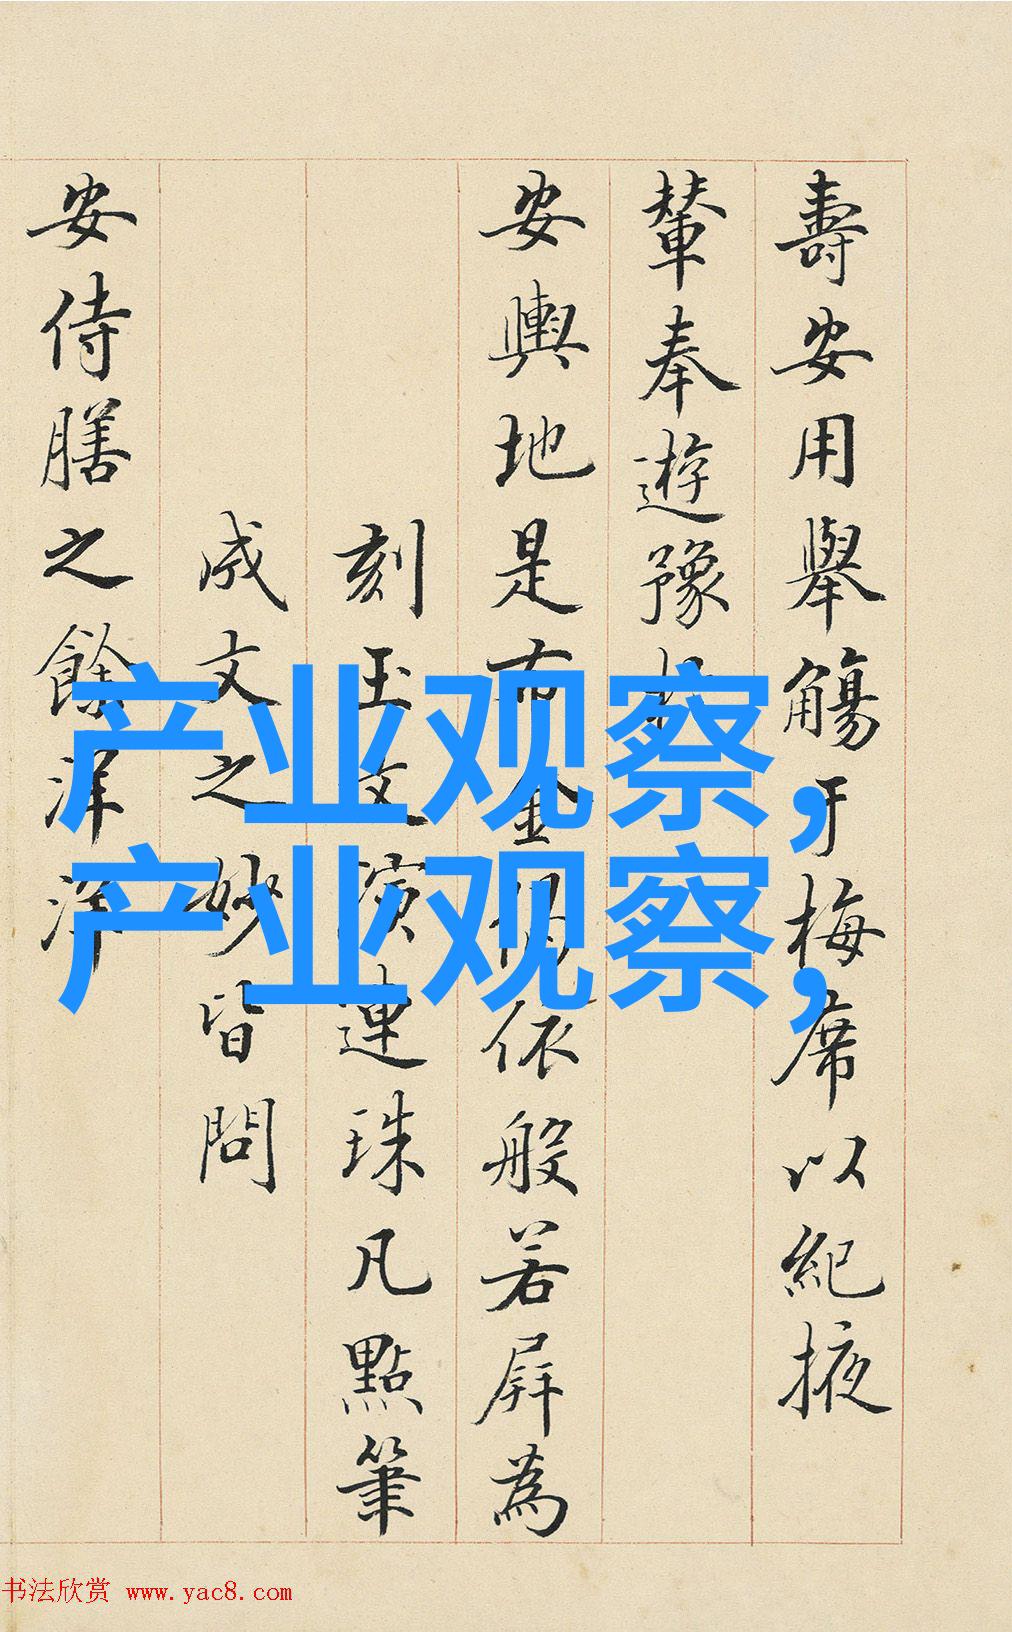 壽安用舉觴于梅席以紀掖
輦奉遊豫
安輿地是布金依般若屏為
刻玉文演連珠凡點筆
成文之妙皆問
安侍膳之餘洋洋
产业观察,
产业观察,
书法欣赏 www.yac8.com